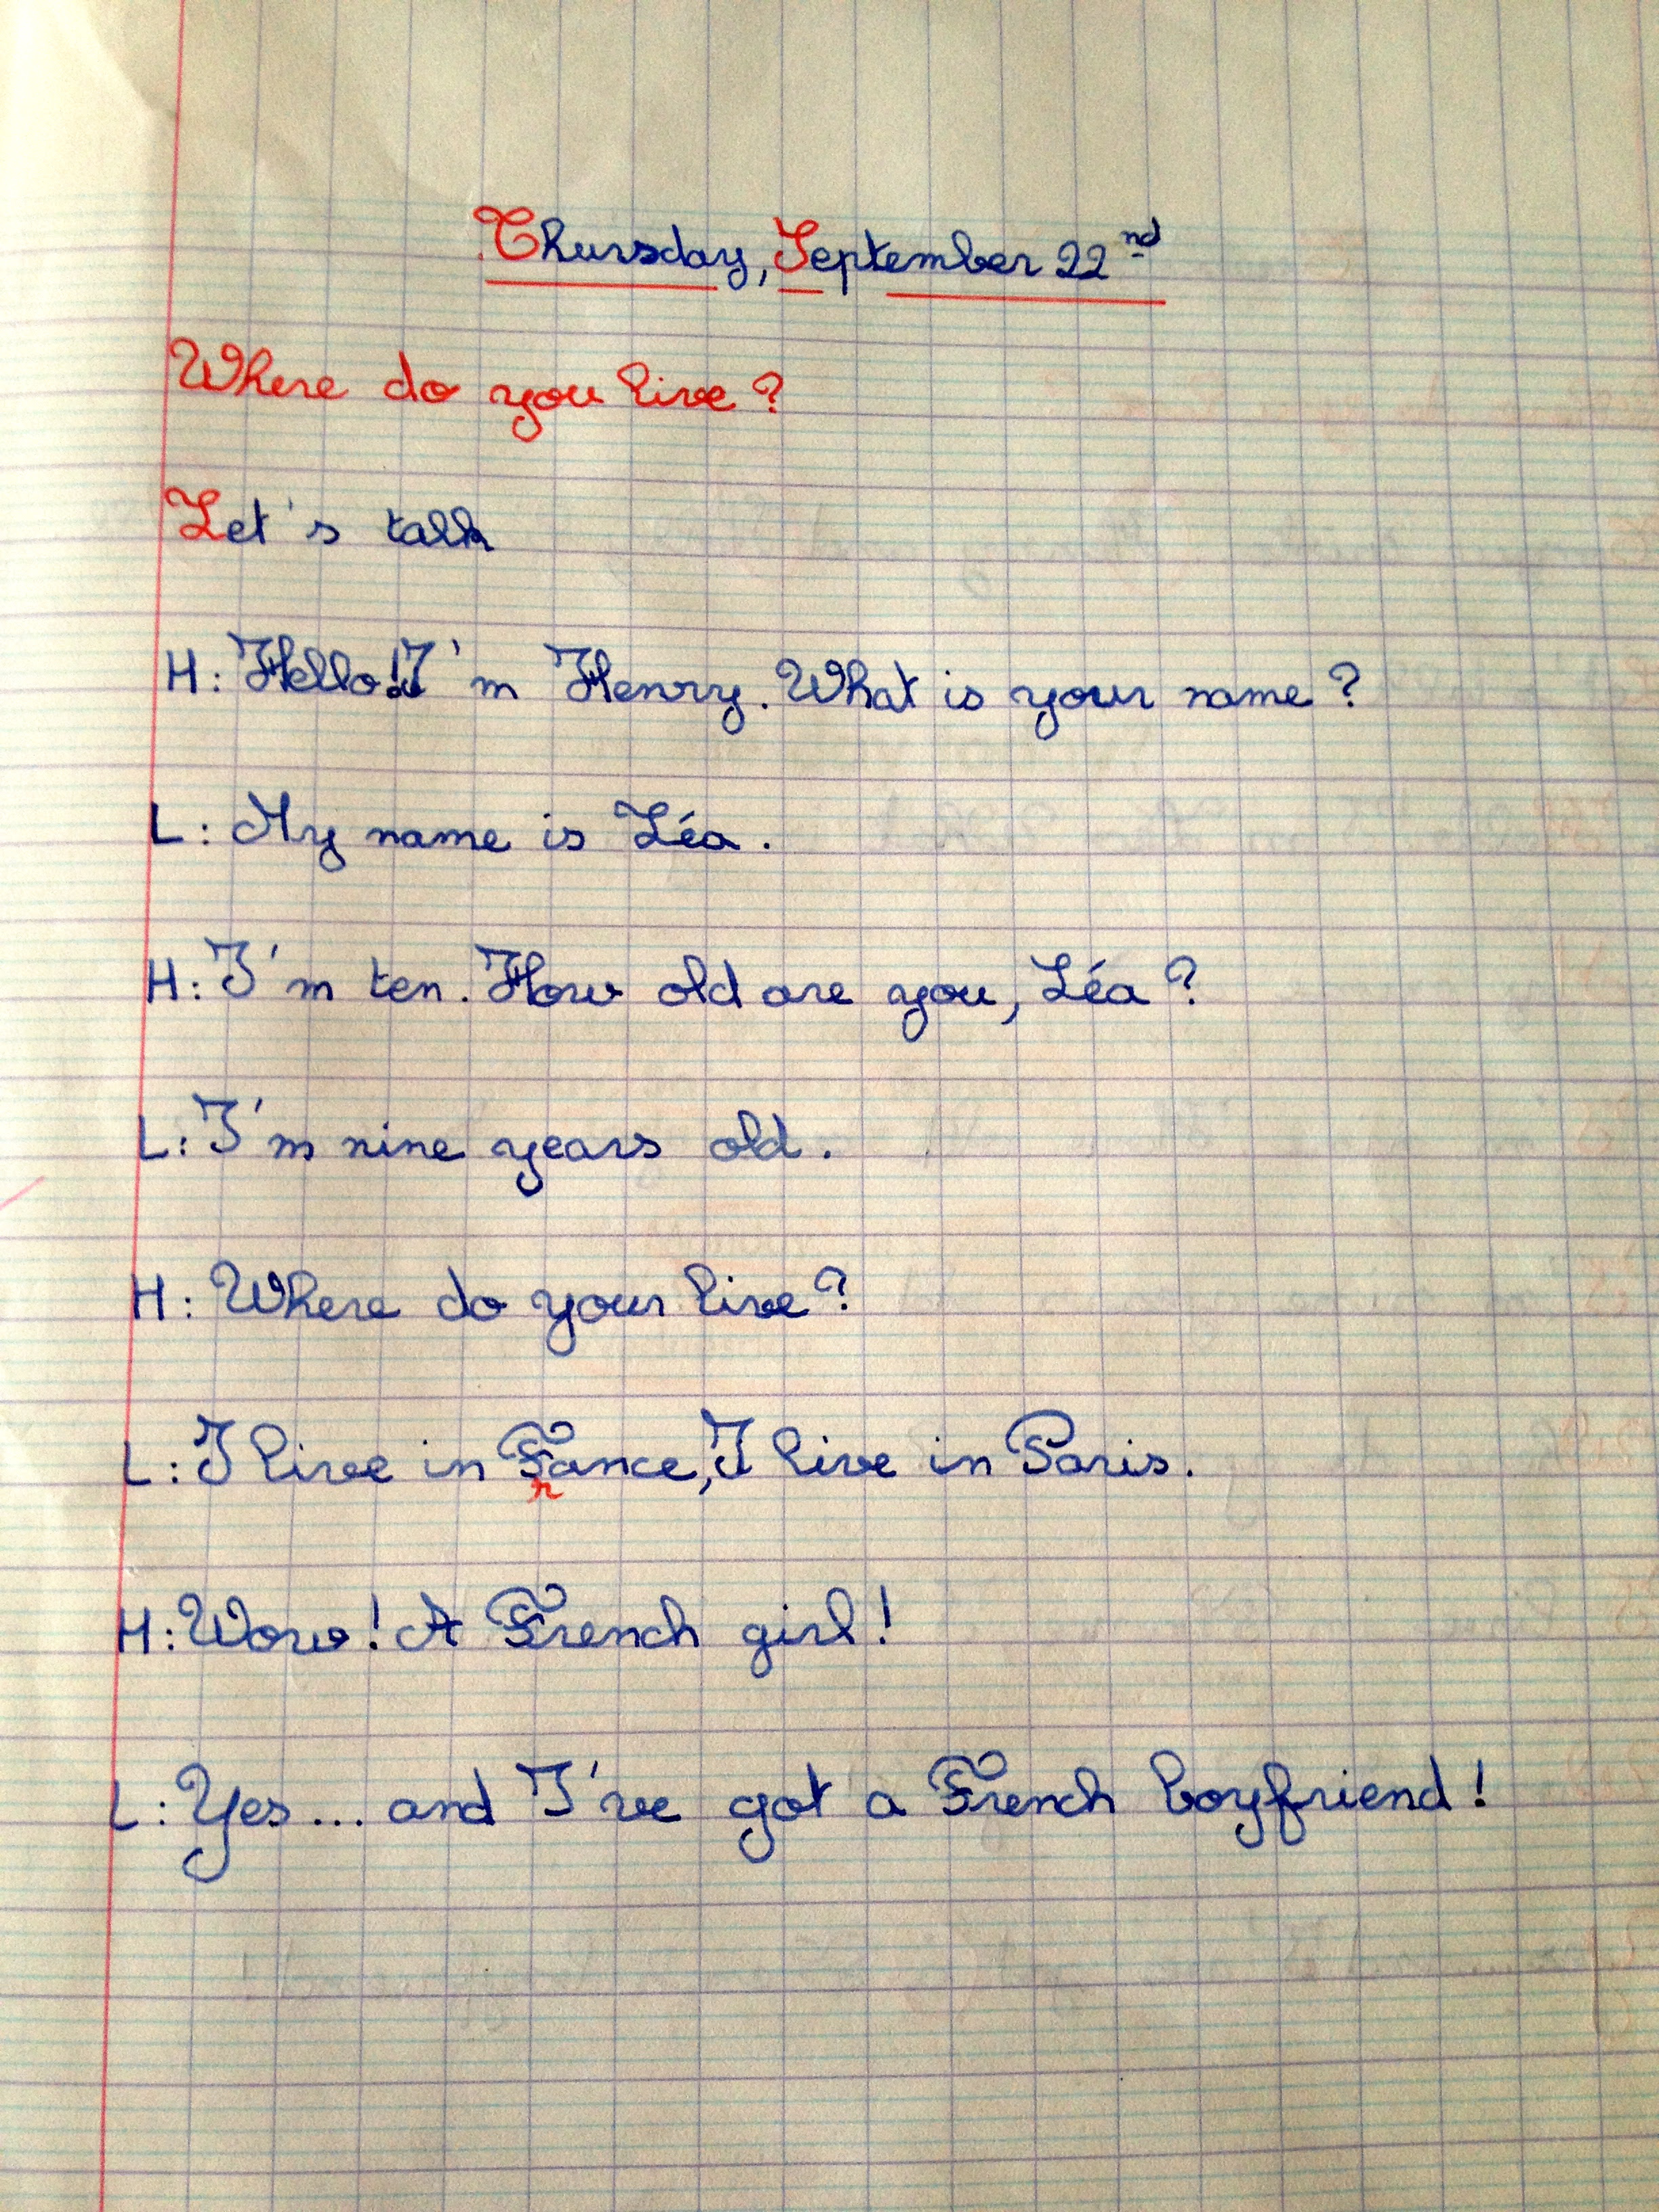 Thursday, September 22nd
Where do you live?
Let's talk
H: Hello! I'm Henry. What is your name?
L: My name is Léa.
H: I'm ten. How old are you, Léa?
L: I'm nine years old.
H: Where do your live?
L: I live in Fance, I live in Paris.
r
H: Wow! A French girl!
L: Yes... and I've got a French boyfriend!